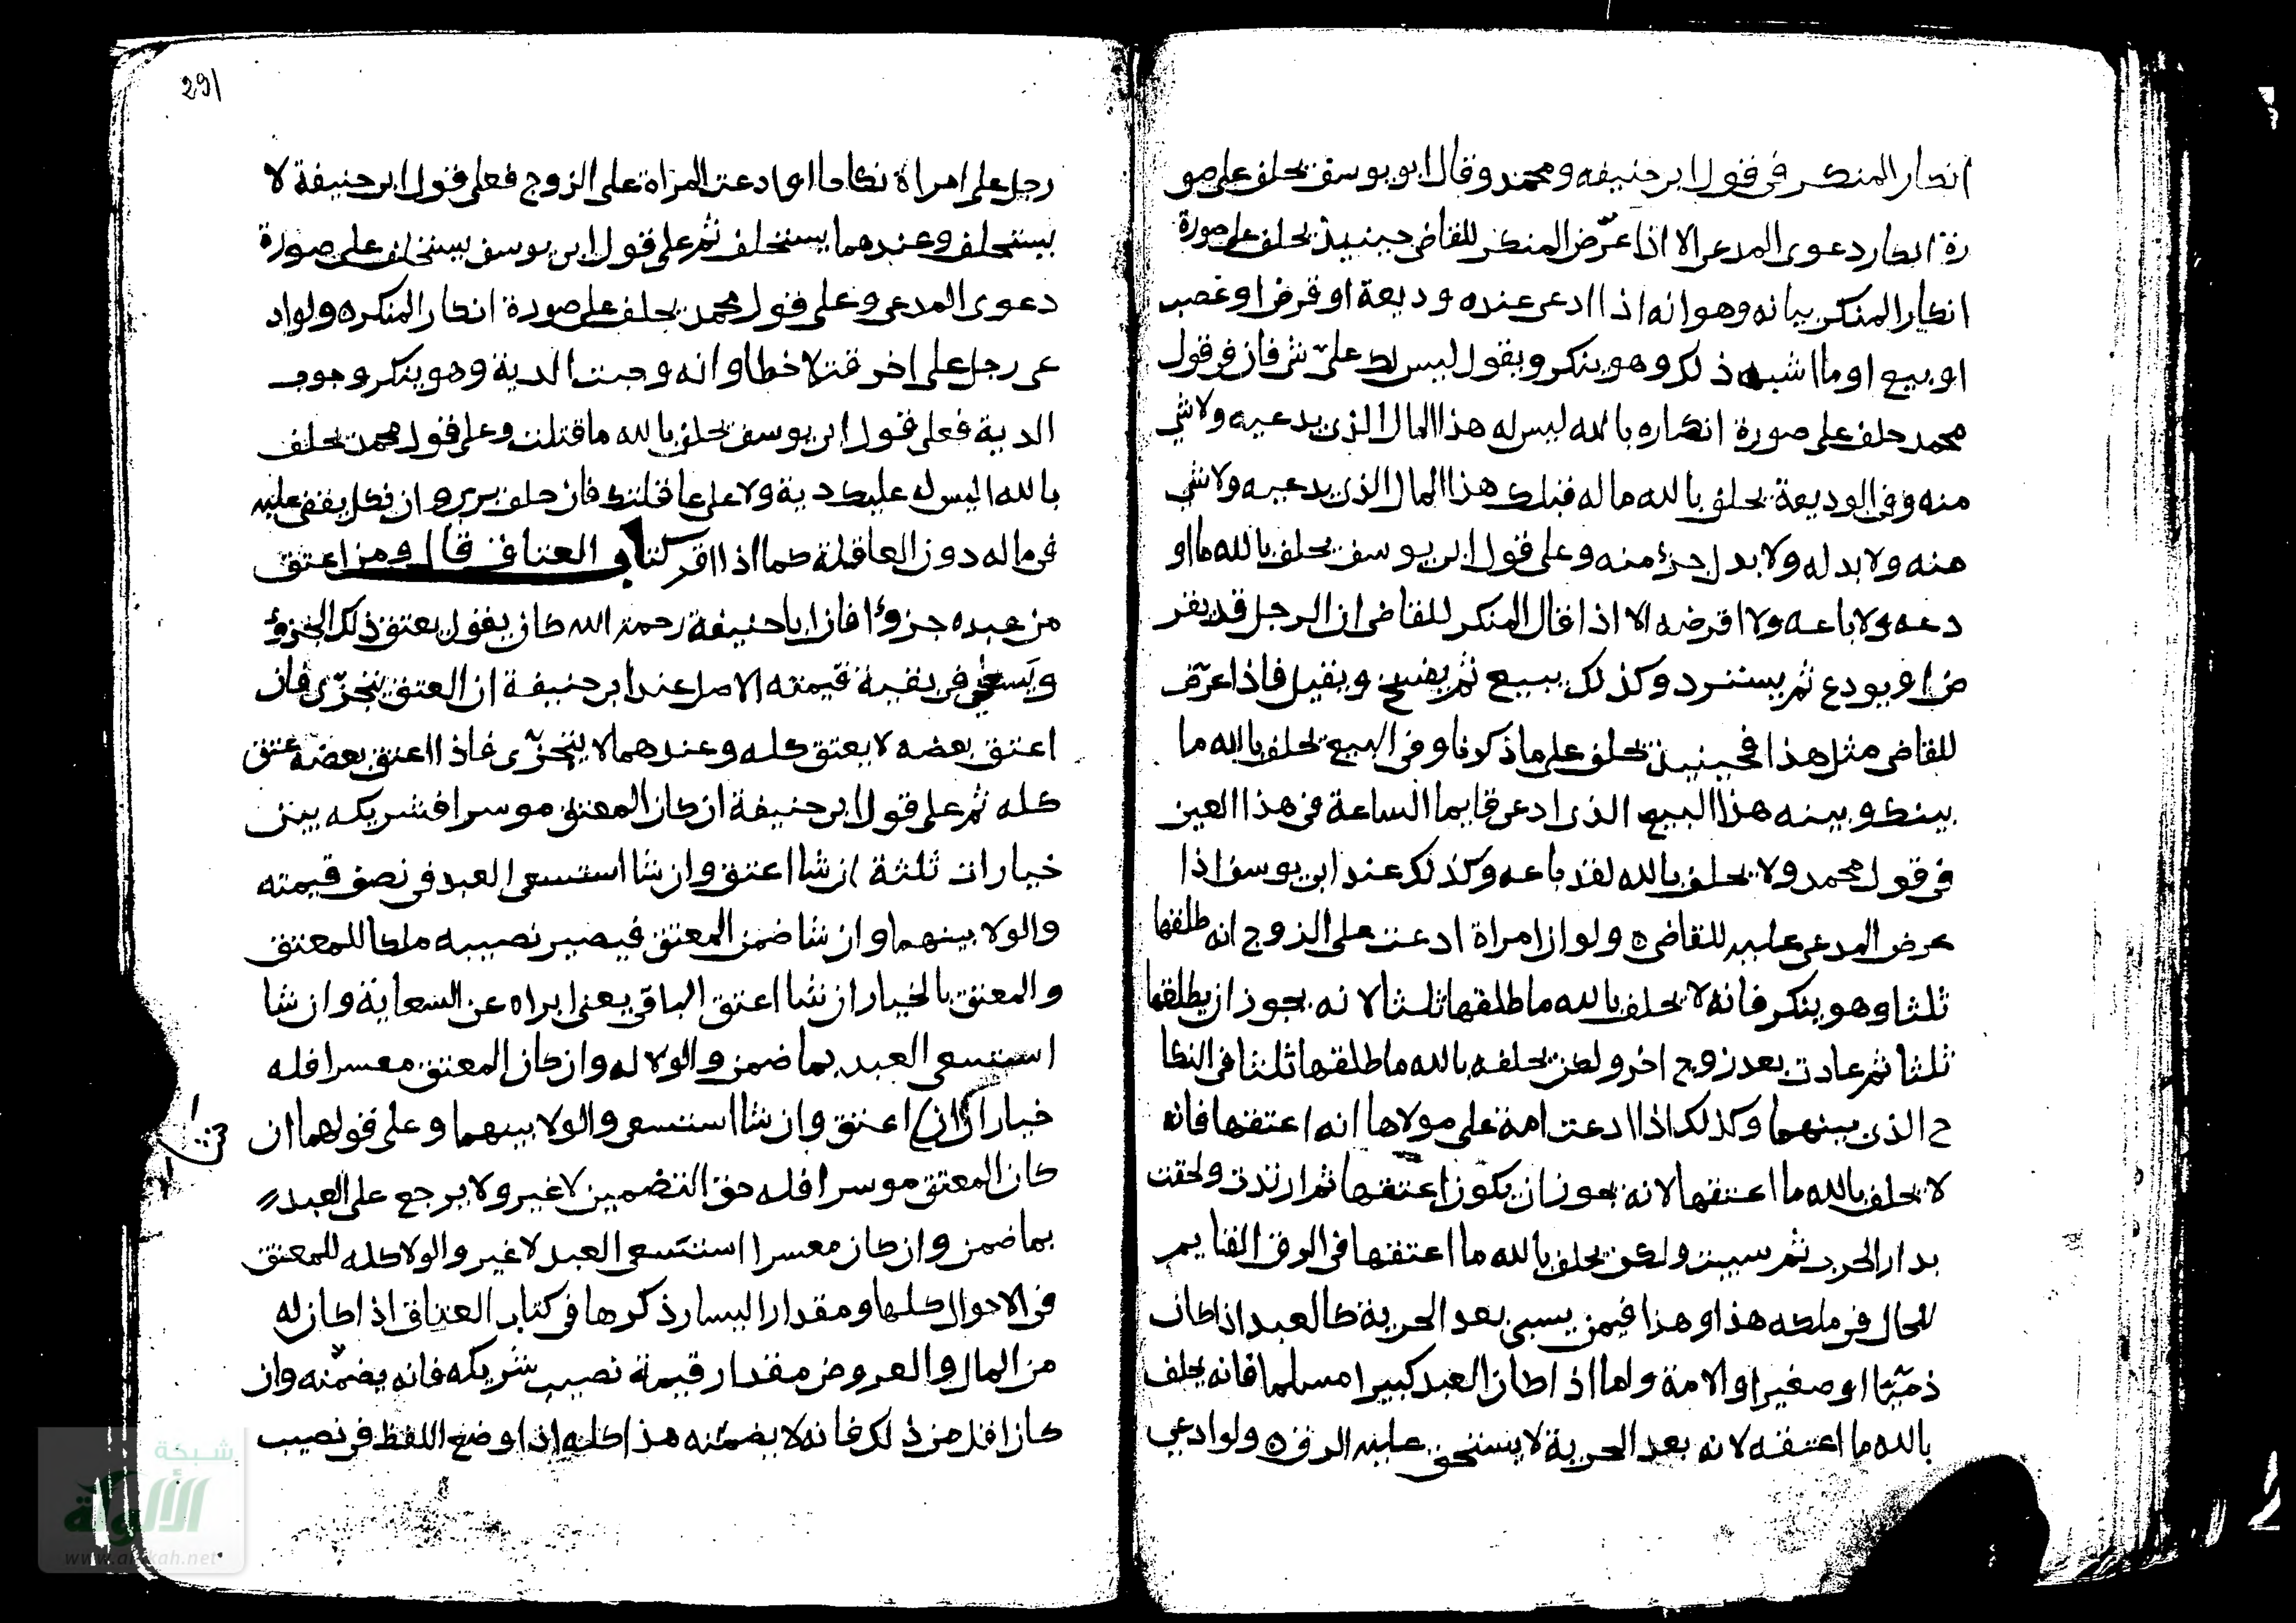 انكار المنكر فى قول ابى حنيفه ومحمد وقال ابو يوسف يحلف على صو
رة انكار دعوى المدعى الا اذا عرّض المنكر للقاضى حينيذ يحلف على صورة
انكار المنكر بيانه وهو انه اذا ادعى عنده وديعة او قرضا او غصب
او بيع او ما اشبه ذلك وهو ينكر ويقول ليس لك علىّ شى فان فى قول
محمد حلف على صورة انكاره بالله ليس له هذا المال الذى يدعيه ولا شي
منه وفى الوديعة يحلف بالله ما له قبلك هذا المال الذى يدعيه ولا شي
منه ولا بدله ولا بدل جزء منه وعلى قول ابى يوسف يحلف بالله ما او
دعه ولا باعه ولا اقرضه الا اذا قال المنكر للقاضى ان الرجل قد يقر
ض او يودع ثم يسترد وكذلك يبيع ثم يفسخ ويقيل فاذا عرّف
للقاضى مثل هذا فحينيذ يحلف على ما ذكرنا وفى البيع يحلف بالله ما
بينك وبينه هذا البيع الذى ادعى قايما الساعة فى هذا العين
فى قول محمد ولا يحلف بالله لقد باعه وكذلك عند ابى يوسف اذا
عرض المدعى عليه للقاضى ه ولو ان امراة ادعت على الزوج انه طلقها
ثلثا وهو ينكر فانه لا يحلف بالله ما طلقها ثلثا لانه يجوز ان يطلقها
ثلثا ثم عادت بعد زوج اخر ولكن يحلفه بالله ما طلقها ثلثا فى النكا
ح الذى بينهما وكذلك اذا ادعت امة على مولاها انه اعتقها فانه
لا يحلف بالله ما اعتقها لانه يجوز ان يكون اعتقها ثم ارتدت ولحقت
بدار الحرب ثم سبيت ولكن يحلف بالله ما اعتقها فى الرق القايم
للحال فى ملكه هذا وهذا فيمن يسبى بعد الحرية كالعبد اذا كان
ذميّا او صغيرا والامة واما اذا كان العبد كبيرا مسلما فانه يحلف
بالله ما اعتقه لانه بعد الحرية لا يستحق عليه الرق ه ولو ادعي
291
رجل على امراة نكاحا او ادعت المراة على الزوج فعلى قول ابى حنيفة لا
يستحلف وعندهما يستحلف ثم على قول ابى يوسف يستحلف على صورة
دعوى المدعى وعلى قول محمد يحلف على صورة انكار المنكر ه ولو اد
عى رجل على اخر قتلا خطا وانه وجبت الدية وهو ينكر وجوب
الدية فعلى قول ابى يوسف يحلف بالله ما قتلت وعلى قول محمد يحلف
بالله اليس له عليك دية ولا على عاقلتك فان حلف برى وان نكل يقضى عليه
فى ماله دون العاقلة كما اذا اقر كتاب العتاق قال ومن اعتق
من عبده جزوًا فان ابا حنيفة رحمه الله كان يقول يعتق ذلك الجزؤ
ويسعى فى بقية قيمته الاصل عند ابى حنيفة ان العتق يتجزّى فان
اعتق بعضه لا يعتق كله وعندهما لا يتجزّى فاذا اعتق بعضه عتق
كله ثم على قول ابى حنيفة ان كان المعتق موسرا فشريكه بين
خيارات ثلثة ان شا اعتق وان شا استسعى العبد فى نصف قيمته
والولا بينهما وان شا ضمن المعتق فيصير نصيبه ملكا للمعتق
والمعتق بالخيار ان شا اعتق الباقى يعنى ابراه عن السعاية وان شا
استسعى العبد بما ضمن والولا له وان كان المعتق معسرا فله
خياران ان اعتق وان شا استسعى والولا بينهما وعلى قولهما ان
كان المعتق موسرا فله حق التضمين لا غير ولا يرجع على العبد
بما ضمن وان كان معسرا استسعى العبد لا غير والولا كله للمعتق
فى الاحوال كلها ومقدار اليسار ذكرها فى كتاب العتاق اذا كان له
من المال والعروض مقدار قيمة نصيب شريكه فانه يضمنه وان
كان اقل من ذلك فانه لا يضمنه هذا كله اذا وضع اللفظ فى نصيب
شبكة
الألوكة
www.alukah.net